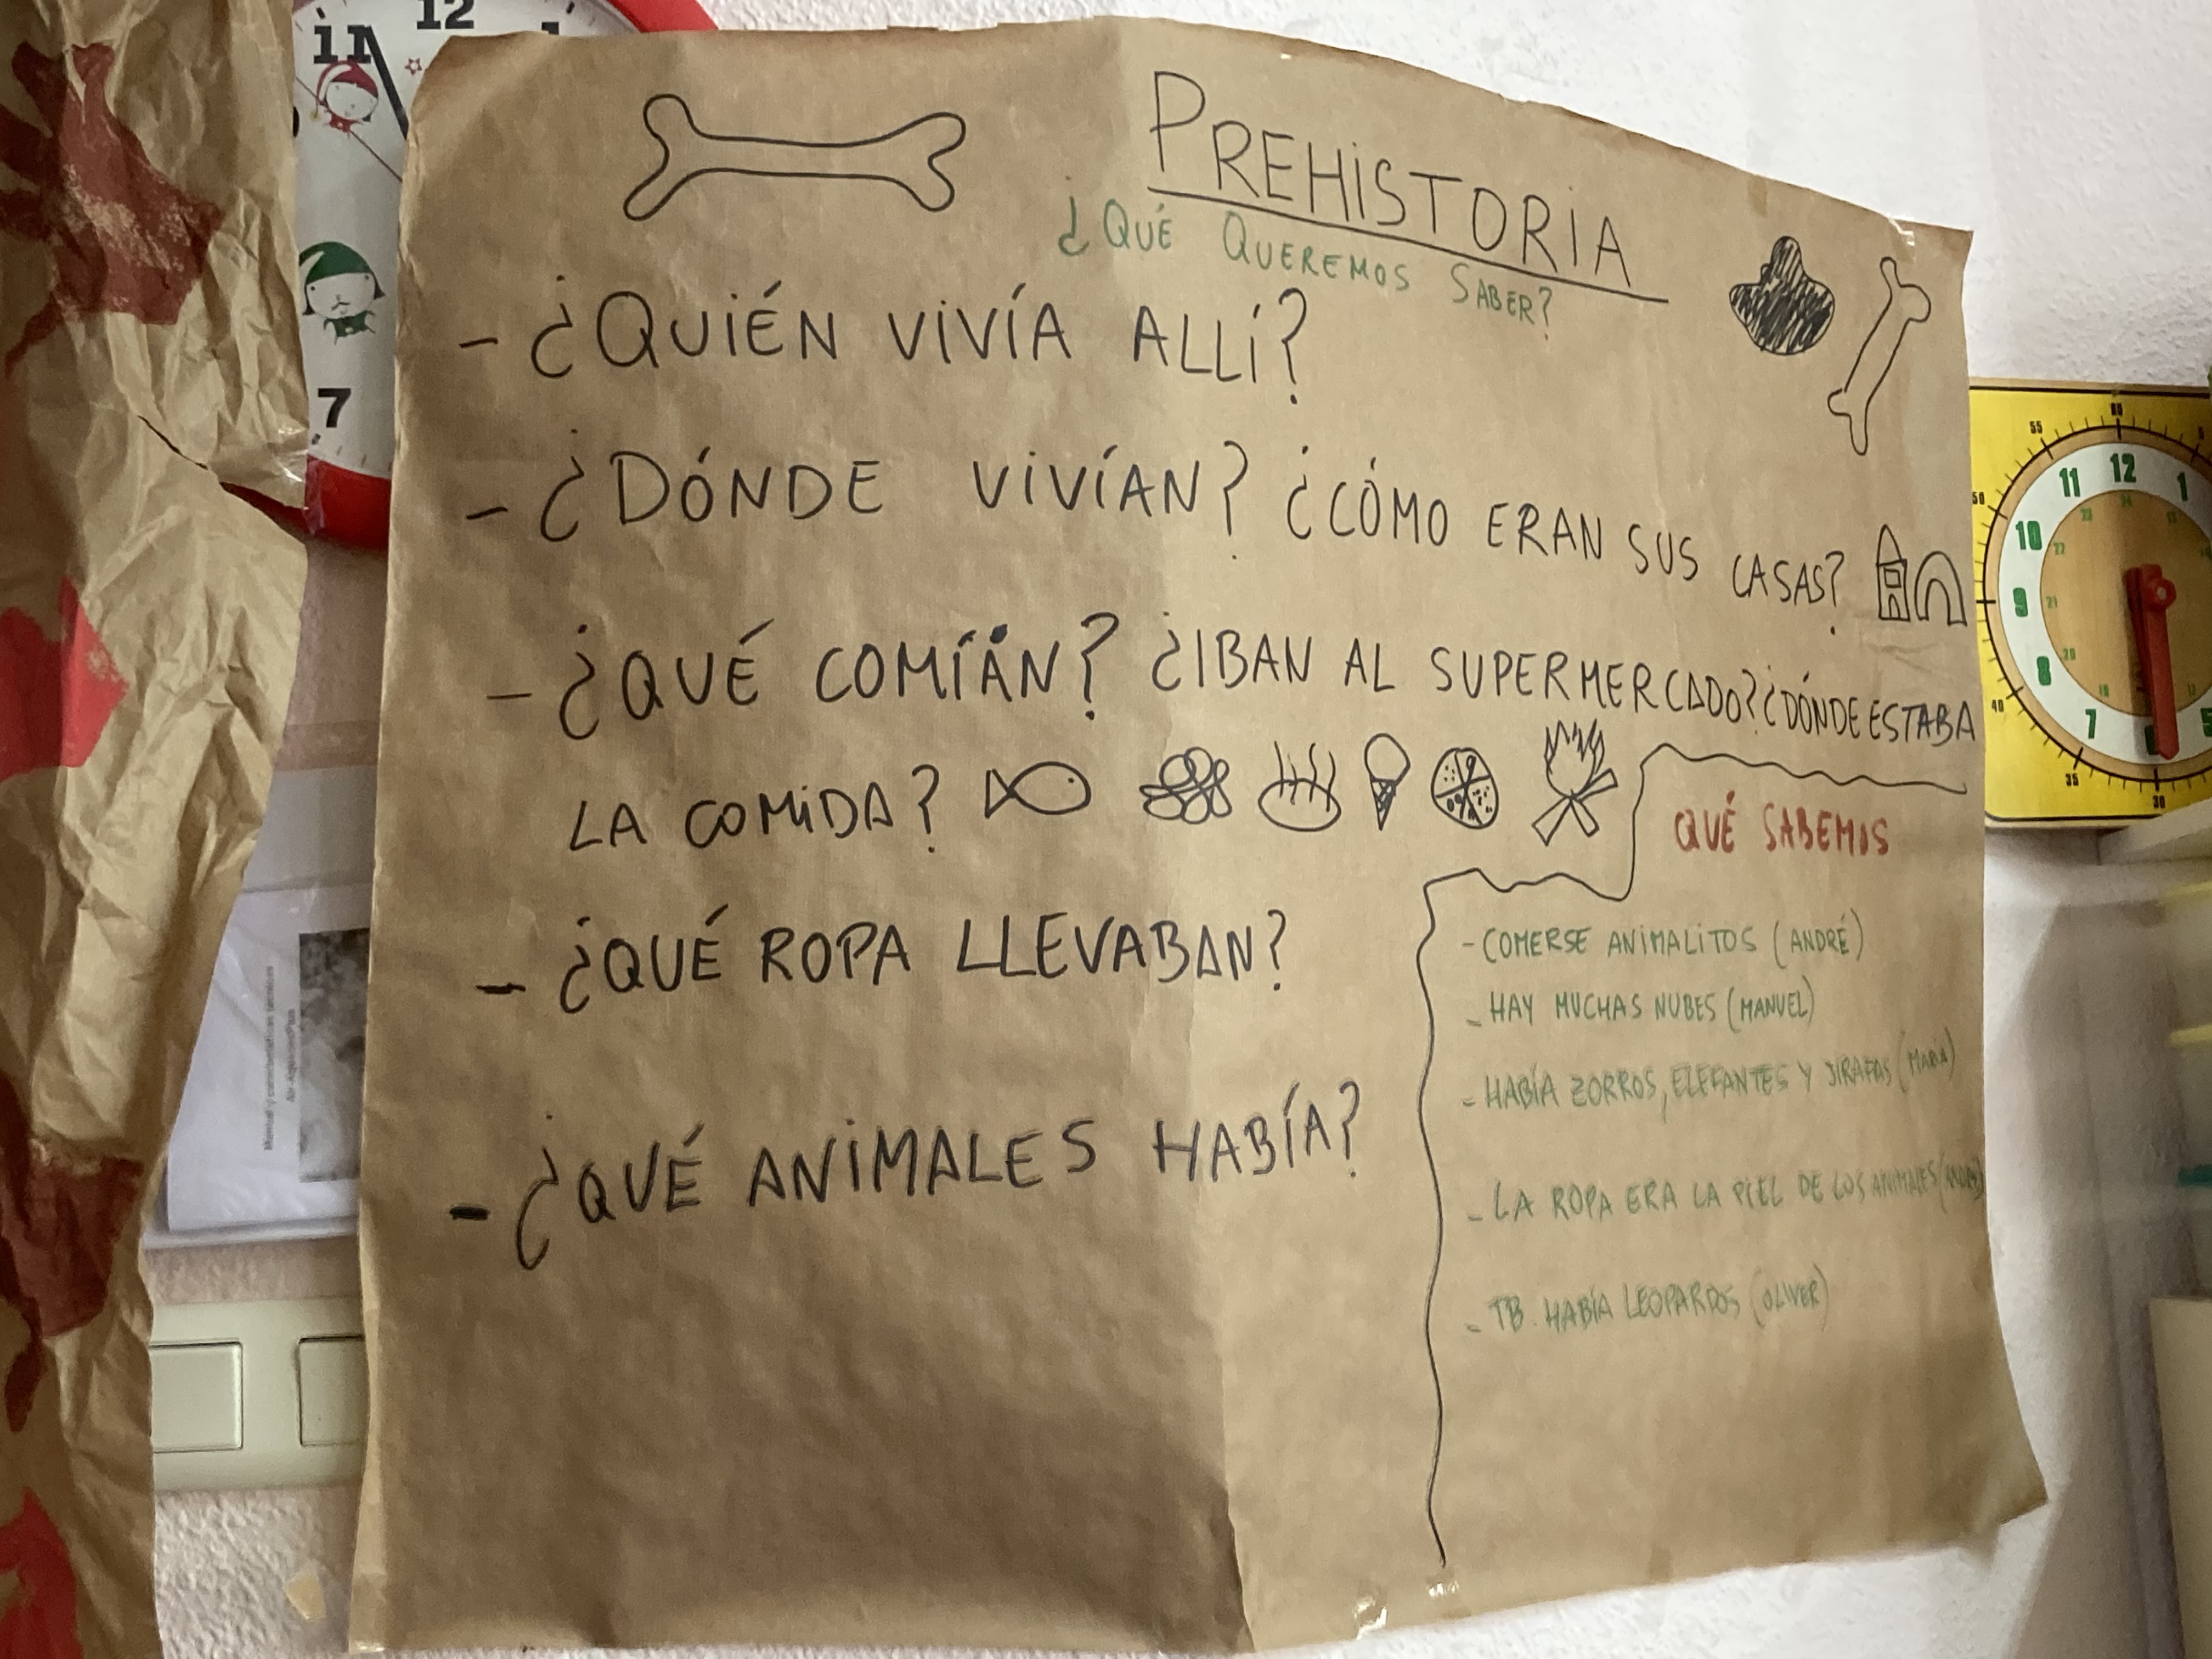 PREHISTORIA
¿QUÉ QUEREMOS SABER?
- ¿QUIÉN VIVÍA ALLÍ?
- ¿DÓNDE VIVÍAN? ¿CÓMO ERAN SUS CASAS?
- ¿QUÉ COMÍAN? ¿IBAN AL SUPERMERCADO? ¿DÓNDE ESTABA
LA COMIDA?
- ¿QUÉ ROPA LLEVABAN?
- ¿QUÉ ANIMALES HABÍA?
QUÉ SABEMOS
- COMERSE ANIMALITOS (ANDRÉ)
- HAY MUCHAS NUBES (MANUEL)
- HABÍA ZORROS, ELEFANTES Y JIRAFAS
- LA ROPA ERA LA PIEL DE LOS ANIMALES
- TB. HABÍA LEOPARDOS (OLIVER)
11 12 1
7
55
50
40
35
30
11 12 1
10
9
8
7
6
5